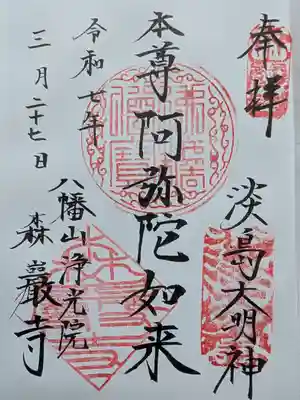 奉拝
淡島大明神
本尊阿弥陀如来
令和七年
三月二十七日
八幡山浄光院
森巖寺